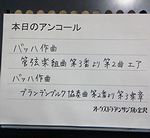 本日のアンコール
バッハ作曲
管弦楽組曲 第3番より 第2曲 エア
バッハ作曲
ブランデンブルク協奏曲 第2番より 第3楽章
オーケストラアンサンブル金沢